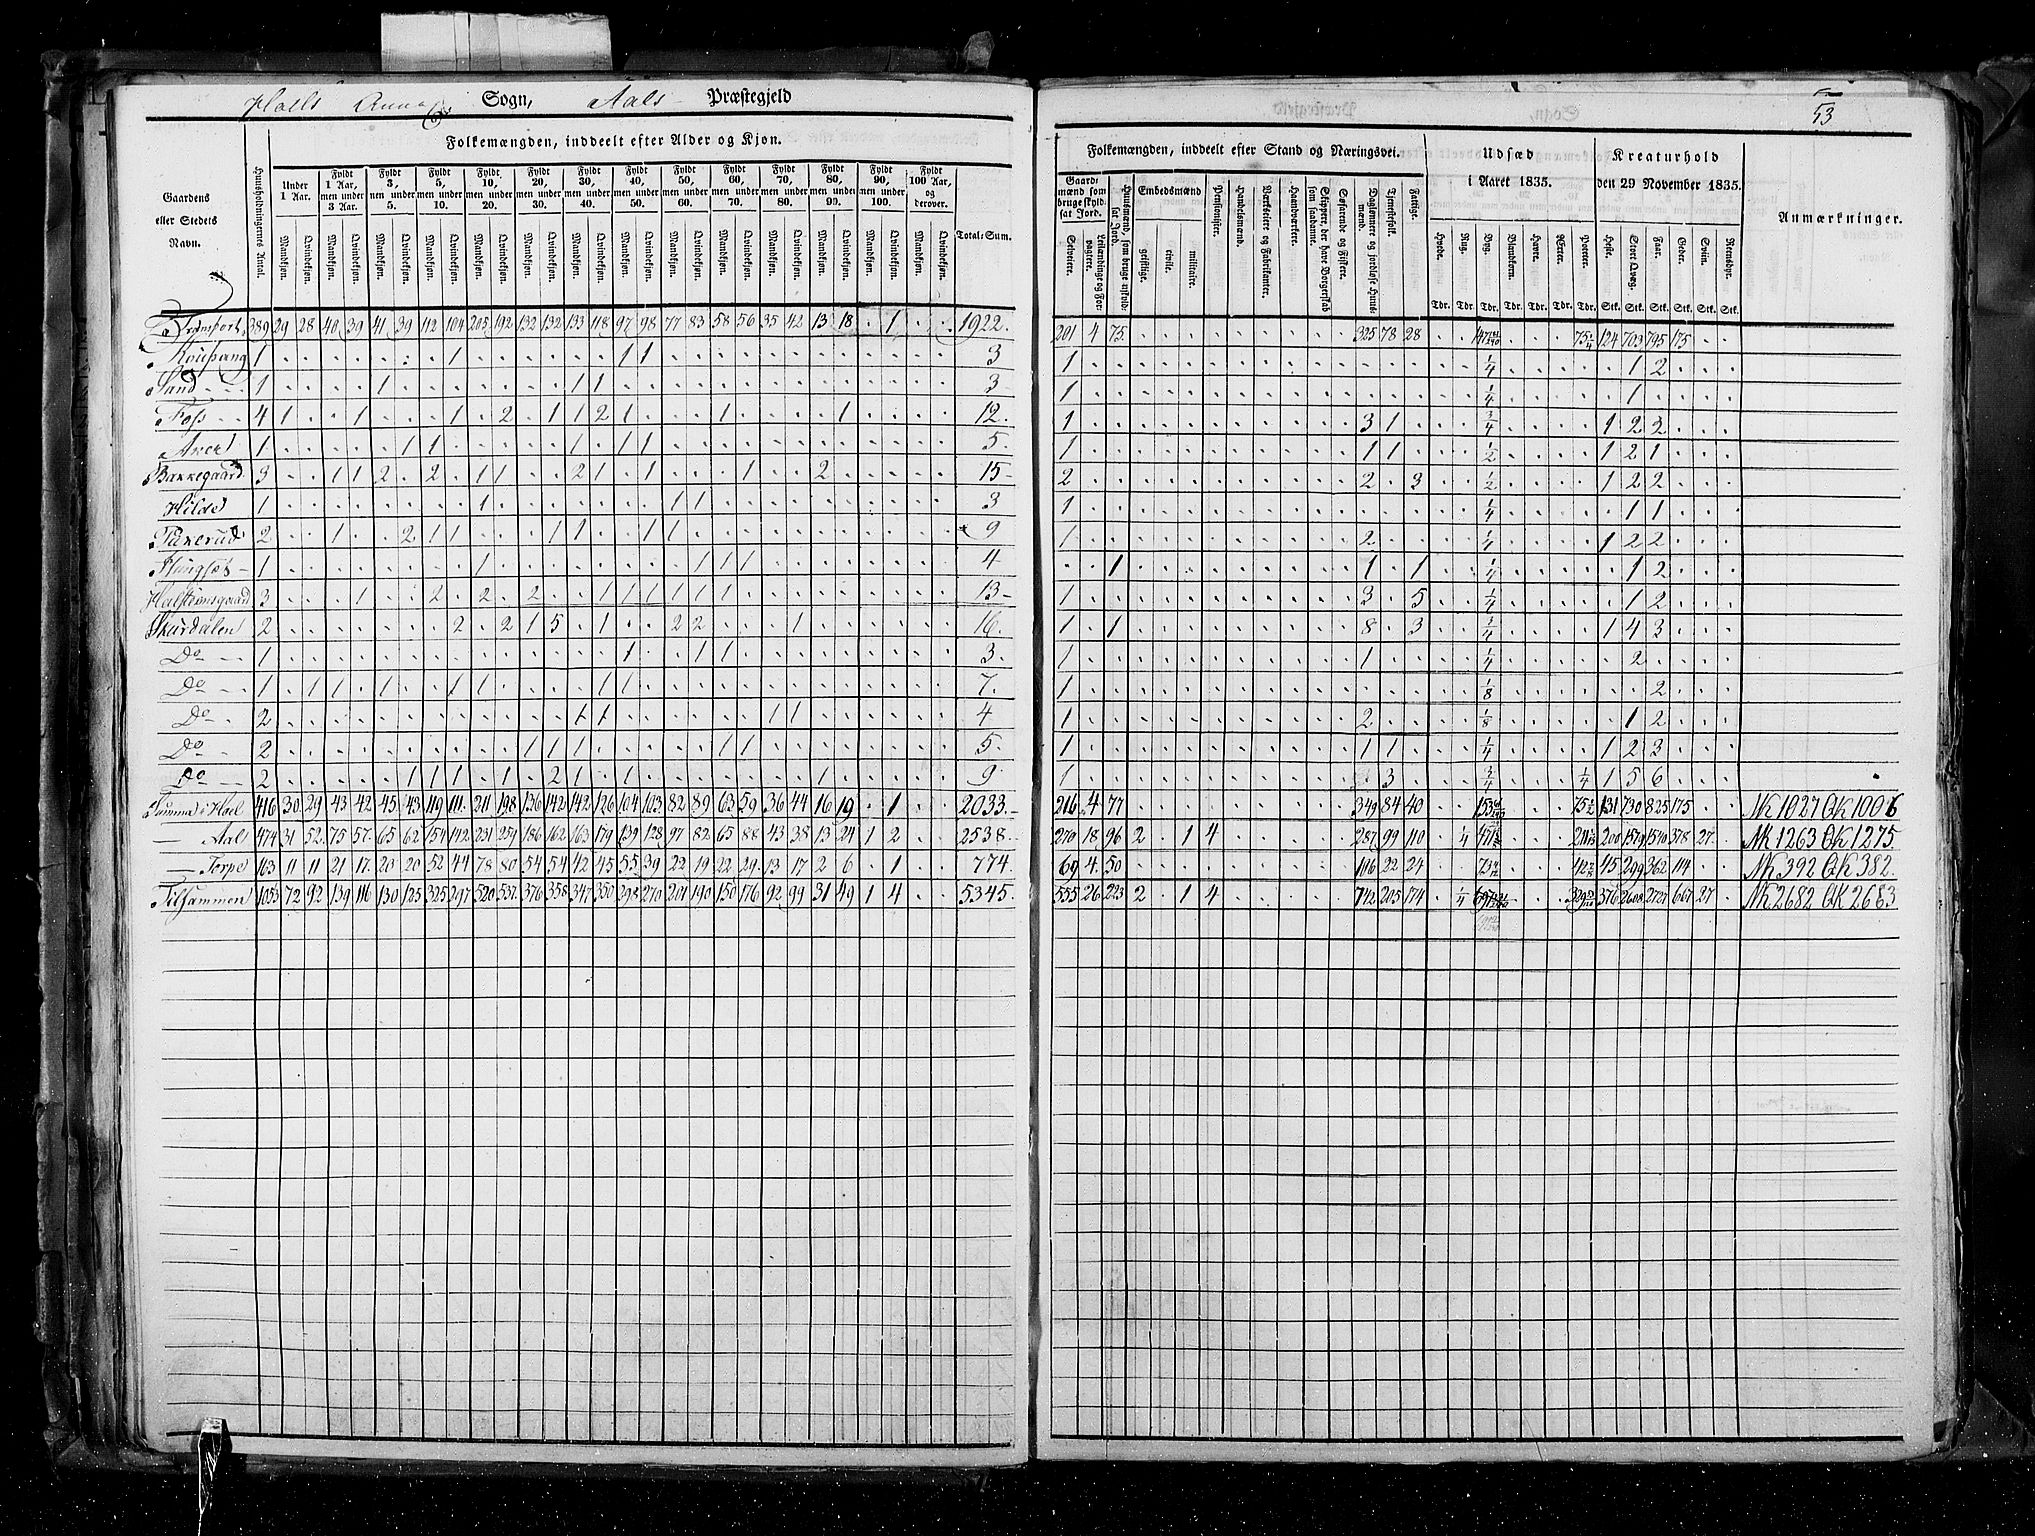 Hoels Annex Sogn, Aals Præstegjeld
53
Gaardens eller Stedets Navn.
Huusholdningernes Antal.
Folkemængden, inddeelt efter Alder og Kjøn.
Under 1 Aar.
Fyldt 1 Aar, men under 3 Aar.
Fyldt 3, men under 5.
Fyldt 5, men under 10.
Fyldt 10, men under 20.
Fyldt 20, men under 30.
Fyldt 30, men under 40.
Fyldt 40, men under 50.
Fyldt 50, men under 60.
Fyldt 60, men under 70.
Fyldt 70, men under 80.
Fyldt 80, men under 90.
Fyldt 90, men under 100.
Fyldt 100 Aar, og derover.
Mandkjøn. Qvindekjøn.
Total-Sum.
Folkemængden, inddeelt efter Stand og Næringsvei.
Gaardmænd som bruge skyldsat Jord.
Selveiere.
Leilændinge og Forpagtere.
Huusmænd, som bruge uskyldsat Jord.
Embedsmænd
geistlige.
civile.
militaire.
Pensionister.
Handelsmænd.
Værkeiere og Fabrikanter.
Haandværkere.
Skippere, der have Borgerskab som saadanne.
Søfarende og Fiskere.
Daglønnere og jordløse Huusmænd.
Tjenestefolk.
Fattige.
Udsæd i Aaret 1835.
Hvede. Rug. Byg. Blandkorn. Havre. Ærter. Poteter.
Tdr. Tdr. Tdr. Tdr. Tdr. Tdr. Tdr.
Kreaturhold den 29 November 1835.
Heste. Stort Qvæg. Faar. Geder. Sviin. Reensdyr.
Stk. Stk. Stk. Stk. Stk. Stk.
Anmærkninger.
Transport, 389 29 28 40 39 41 39 112 104 205 192 132 132 133 118 97 98 77 83 58 56 35 42 13 18 . 1 . . 1922. 201 4 75 325 78 28 75 1/4 124 703 795 175
1 1 1 1 3 1 1/4 1 2
Sand 1 1 1 1 3 1 1/4 1
Foss 4 1 1 1 2 1 1 2 1 1 1 12. 1 3 1 3/4 1 2 2
Aker 1 1 1 1 1 1 5. 1 1 1 1/2 1 2 1
Bakkegaard 3 1 1 2 2 1 1 2 1 1 1 2 15 2 2 3 1/2 1 2 2
Hilde 1 1 1 1 3 1 1/4 1 1
2 1 2 1 1 1 1 1 1 9 1 2 1/4 1 2 2
1 1 1 1 1 4 1 1 1 1/4 1 2
3 1 2 2 2 1 1 1 1 1 1 13 1 3 5 1/4 1 2
Skurdalen 2 2 2 1 5 1 2 2 1 16. 1 1 8 3 3/4 1 4 3
Do 1 1 1 1 3. 1 1 1/4 2
Do 1 1 1 1 1 1 1 1 7. 1 1/8 2
Do 2 1 1 1 1 4 1 2 1/8 1 2
Do 2 1 1 1 1 1 5. 1 1 1 1/4 1 2 3
Do 2 1 1 1 1 2 1 1 1 9. 1 3 3/4 1/4 1 5 6
Summa i Hoel 416 30 29 43 42 45 43 119 111 211 198 136 142 142 126 104 103 82 89 63 59 36 44 16 19 . 1 2033. 216 4 77 349 84 40 75 1/2 131 730 825 175 MK 1027 QK 1006
— Aal 474 31 52 75 57 65 62 154 142 231 259 186 162 163 179 139 128 97 82 65 88 43 38 13 24 1 2 2538. 270 18 96 2 1 4 287 99 110 1/4 200 1579 1540 378 27 MK 1263 QK 1275.
— Torpe 163 11 11 21 17 20 20 52 44 78 80 54 54 42 45 55 39 22 19 22 29 13 17 2 6 . 1 774. 69 4 50 106 22 24 45 299 362 114 MK 392 QK 382.
Tilsammen 1053 72 92 139 116 130 125 325 297 520 537 376 358 347 350 298 270 201 190 150 176 92 99 31 49 1 4 5345. 555 26 223 2 1 4 742 205 174 1/4 376 2608 2727 667 27 MK 2682 QK 2663